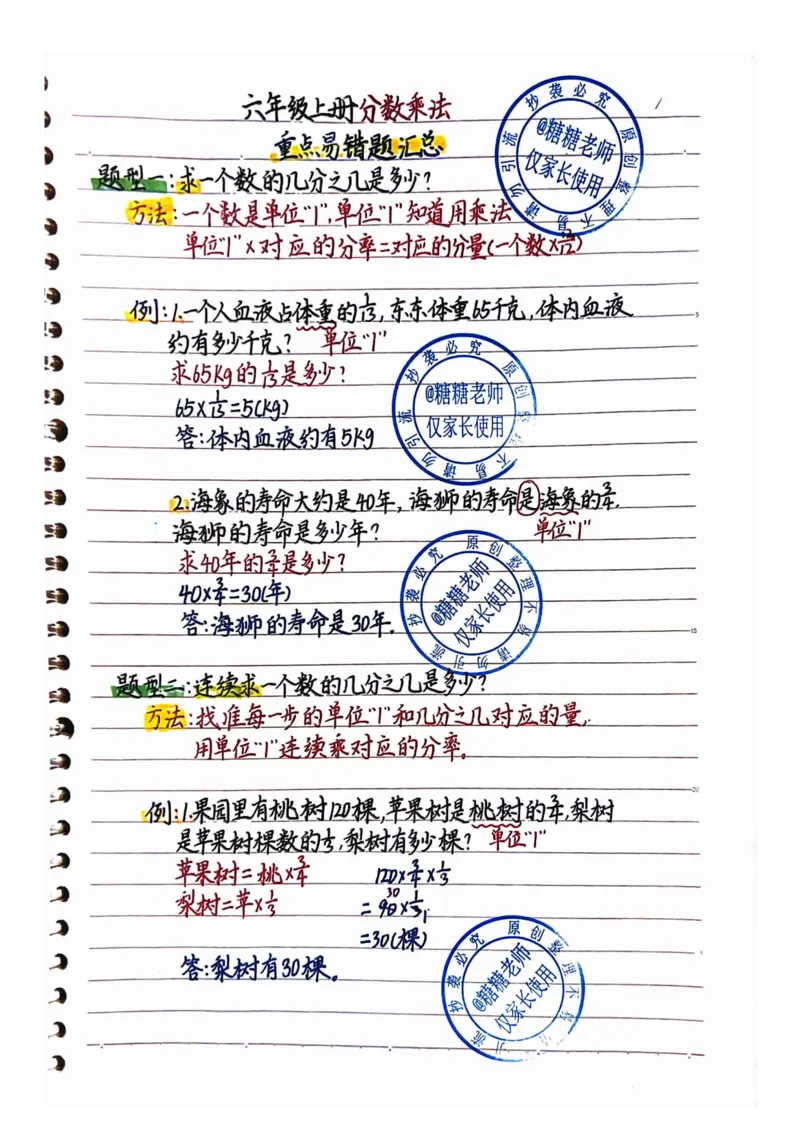 六年级上册分数乘法
重点易错题汇总
题型一:求一个数的几分之几是多少?
方法:一个数是单位"1",单位"1"知道用乘法
单位"1"×对应的分率=对应的分量(一个数×)
例:1.一个人血液占体重的1/13,东东体重65千克,体内血液
约有多少千克? 单位"1"
求65kg的1/13是多少?
65×1/13=5(kg)
答:体内血液约有5kg
2.海象的寿命大约是40年,海狮的寿命是海象的3/4.
海狮的寿命是多少年? 单位"1"
求40年的3/4是多少?
40×3/4=30(年)
答:海狮的寿命是30年.
题型二:连续求一个数的几分之几是多少?
方法:找准每一步的单位"1"和几分之几对应的量,
用单位"1"连续乘对应的分率。
例:1.果园里有桃树120棵,苹果树是桃树的3/4,梨树
是苹果树棵数的1/3,梨树有多少棵? 单位"1"
苹果树=桃×3/4 120×3/4×1/3
梨树=苹×1/3 =90×1/3
=30(棵)
答:梨树有30棵。
@糖糖老师
仅家长使用
抄袭必究 原创整理 不易 请勿引流
@糖糖老师
仅家长使用
抄袭必究 原创整理 不易 请勿引流
@糖糖老师
仅家长使用
抄袭必究 原创整理 不易 请勿引流
@糖糖老师
仅家长使用
抄袭必究 原创整理 不